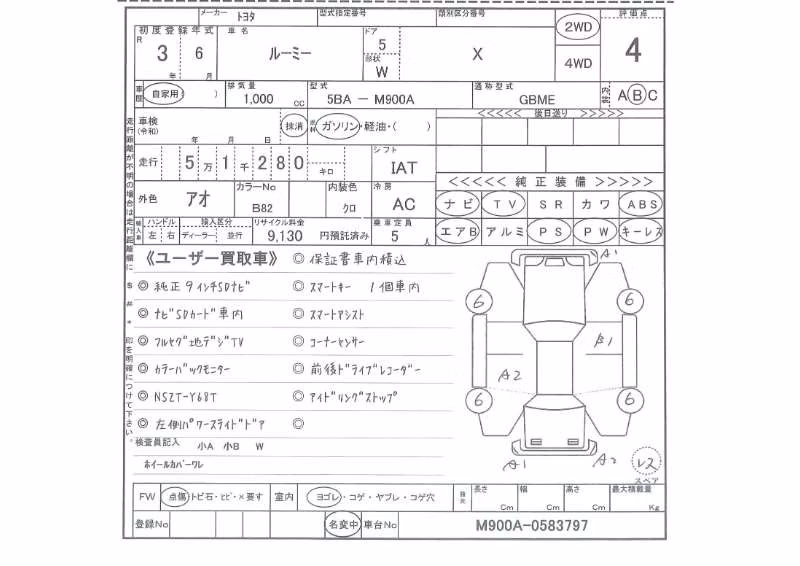 メーカー トヨタ 型式指定番号 類別区分番号 2WD 評価点
初度登録年式 車名 ドア
R 3 6 ルーミー 5 X 4
年 月 形状 W 4WD
車歴 自家用( ) 排気量 1,000 CC 型式 5BA － M900A 通称型式 GBME A B C
<<<<< 後日送り >>>>>
車検 (令和) 年 月 日 抹消 燃料 ガソリン・軽油・( )
走行距離が不明の場合は走行距離欄に $ # * 印を明確につけて下さい。
走行 5万1千280 キロ シフト IAT
<<<<< 純正装備 >>>>>
外色 アオ カラーNo B82 内装色 クロ 冷房 AC
ナビ TV SR カワ ABS
輸入車 ハンドル 左 右 輸入区分 ディーラー 並行 リサイクル料金 9,130 円預託済み 乗車定員 5 人
エアB アルミ PS PW キーレス
《ユーザー買取車》 ◎ 保証書車内積込
◎ 純正9インチSDナビ ◎ スマートキー 1個車内
◎ ナビSDカード車内 ◎ スマートアシスト
◎ フルセグ地デジTV ◎ コーナーセンサー
◎ カラーバックモニター ◎ 前後ドライブレコーダー
◎ NSZT-Y68T ◎ アイドリングストップ
◎ 左側パワースライドドア ◎
A1
6 6
B1
A2
6 6
A1 A2
レス
スペア
検査員記入 小A 小B W
ホイールカバーワレ
FW 点傷・トビ石・ヒビ・×要す 室内 ヨゴレ・コゲ・ヤブレ・コゲ穴 長さ Cm 幅 Cm 高さ Cm 最大積載量 Kg
登録No 名変中 車台No M900A-0583797